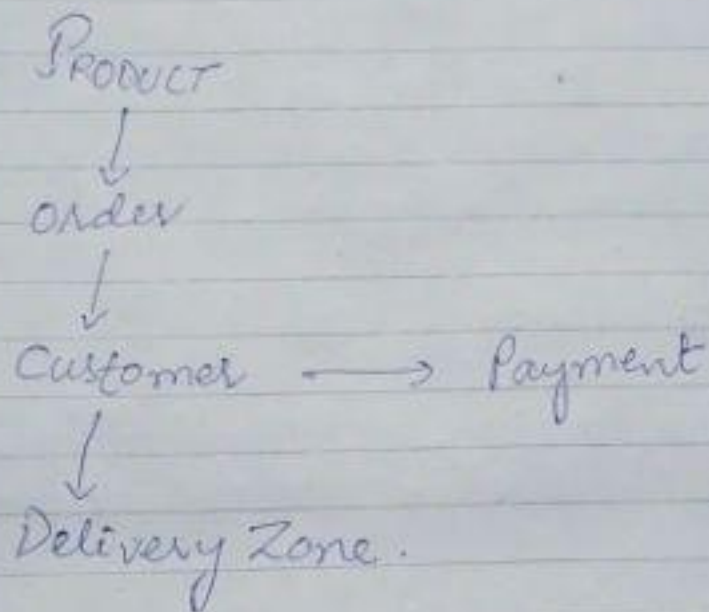 PRODUCT
Order
Customer → Payment
Delivery Zone.